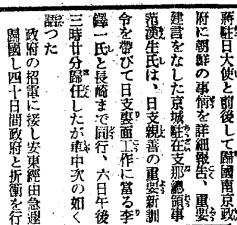 蔣駐日大使と前後して歸國南京政
府に朝鮮の事情を詳細報告、重要
建言をなした京城駐在支那總領事
范漢生氏は、日支親善の重要新訓
令を帶びて日支裏面工作に當る李
鐸一氏と長崎まで同行、六日午後
三時廿分歸任したが車中次の如く
語つた
政府の招電に接し安東經由急遽
歸國し四十日間政府と折衝を行